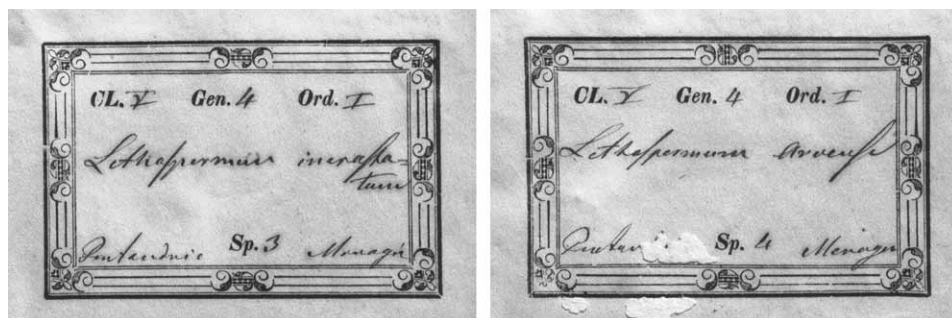 CL. V Gen. 4 Ord. I
Lithospermum incrassa=
tum
Pentandrie Sp. 3 Monogÿ
CL. V Gen. 4 Ord. I
Lithospermum Arvense
Sp. 4 Monogÿ